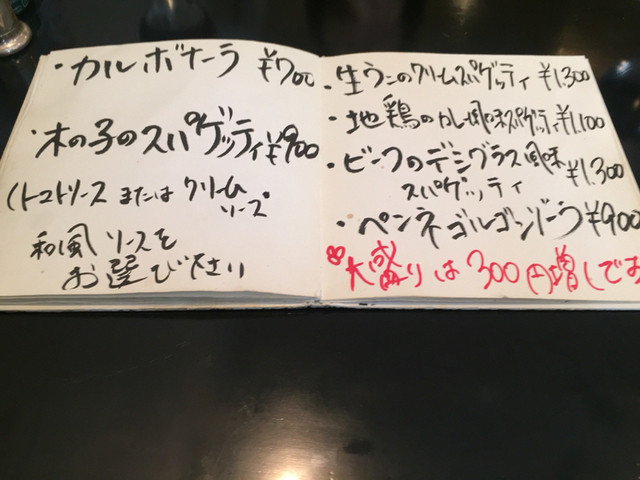 ・カルボナーラ ¥700
・木の子のスパゲッティ¥900
(トマトソース または クリーム
ソース
和風ソースを
お選び下さい
・生うにのクリームスパゲッティ ¥1,300
・地鶏のカレー風味スパゲッティ¥1,100
・ビーフのデミグラス風味
スパゲッティ ¥1,300
・ペンネゴルゴンゾーラ¥900
大盛りは300円増しです